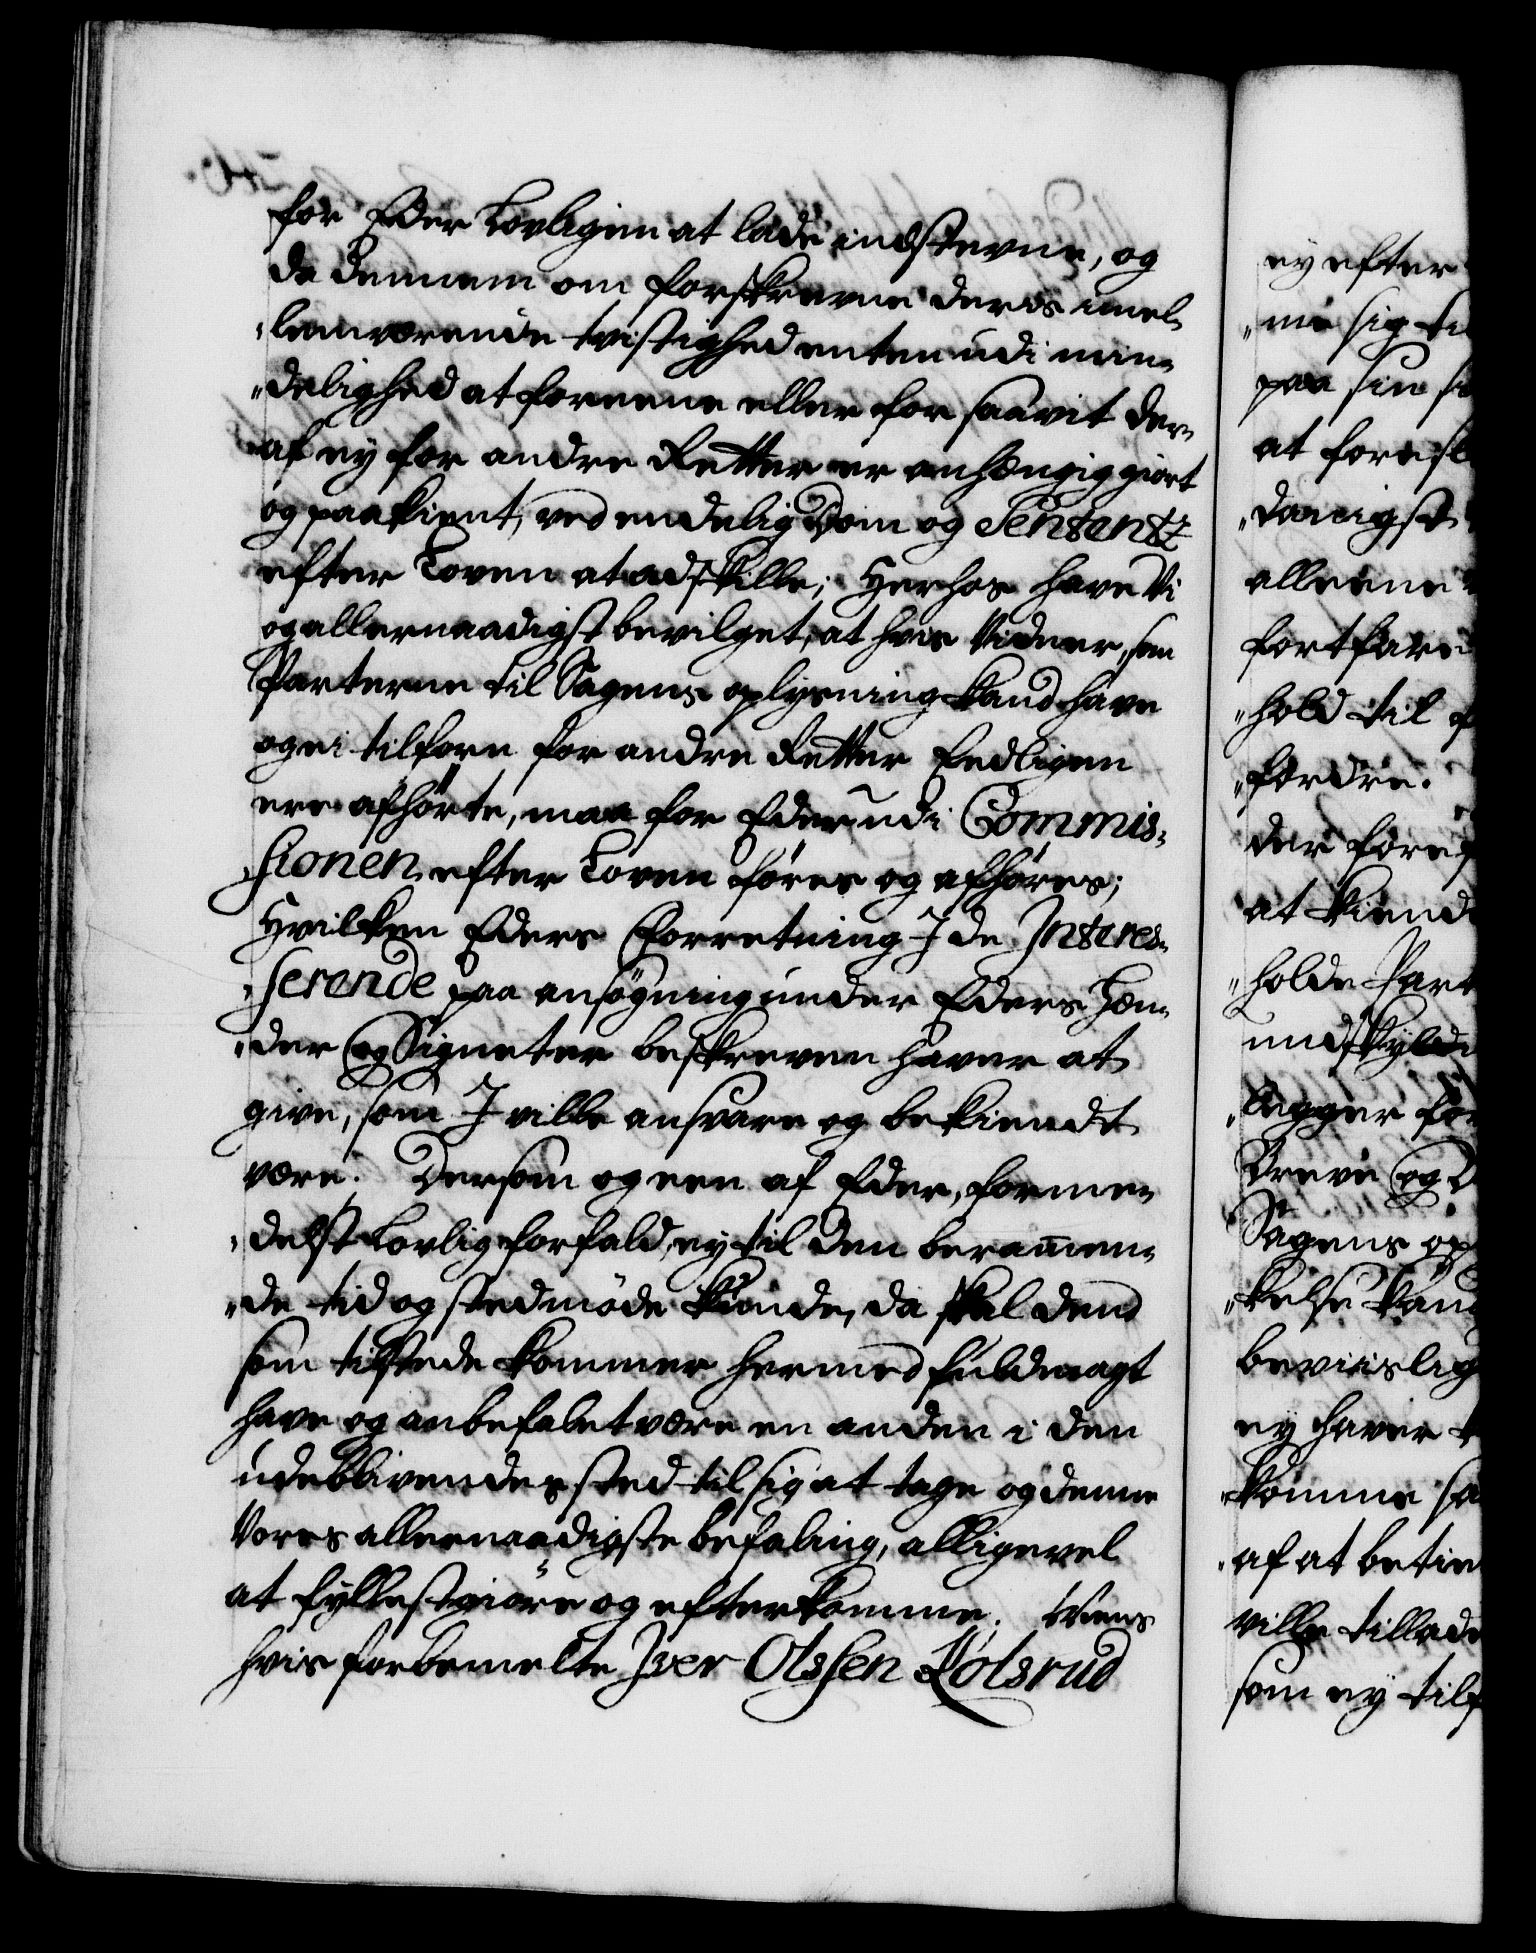 for Eder Lovligen at lade indstevne, og
da dennem om forskrevne deris imel-
lemværende tvistighed enten udi min-
delighed at foreene eller for saavit der-
af ey for andre Retter er anhængig giort
og paakient, ved endelig Dom og Sentantz
efter Loven at adskille; Herhos have Vi
og allernaadigst bevilget, at hvis Vidner, som
Parterne til Sagens oplysning kand have
og ei tilforn for andre Retter Eedligen
ere afhörte, maa for Eder udi Commis-
sionen efter Loven föres og afhöres;
Hvilken Eders Forretning I de Interes-
serende paa ansögning under Eders Hæn-
der og Signeter beskreven haver at
give, som I ville ansvare og bekiendt
være. Dersom og een af Eder, forme-
delst Lovlig forfald, ey til den beramen-
de tid og sted möde kunde, da skal dend
som tilstede kommer hermed fuldmagt
have og anbefalet være en anden i den
udeblivendes sted til sig at tage og denne
Vores allernaadigste befaling, alligevel
at fyllestgiöre og efterkomme. Men
hvis forbemelte Iver Olssen Rolsrud
ey efter
me sig til
paa sin
at foresl
danigst
alleene
fortfare
hold til
fordre.
der fore
at kiende
holde Part
undskylde
lægger for
Breve og D
Sagens op
kelse kand
beviislig
ey haver
komme sa
af at betien
ville tillade
som ey tilf